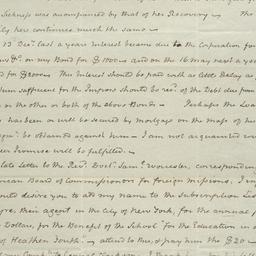 Sickness was accompanied by that of her Recovery — The
ily her continues much the same —
13 Decr last a year Interest became due to the Corporation for
on my Bond for £ 1800 and on the 16 may next a year
d for £ 8000 This Interest should be paid with as little Delay as p
um sufficient for the Purpose should be recd. of the Debts due from
in the other or both of the above Bonds — Perhaps the Loan
has been or will be secured by mortgage on the Maps of her
to be obtained against him — I am not acquainted
Promise will be fulfilled —
late Letter to the Revd. Doctr. Saml. Worcester, correspondin
rican Board of Commissioners for foreign missions, I en
ould desire you to add my name to the subscription
their agent in the City of New York, for the annual
Dollars, for the Benefit of the School "for the Education in
of Heathen Youth" — attend to this, & pay him the $20 —